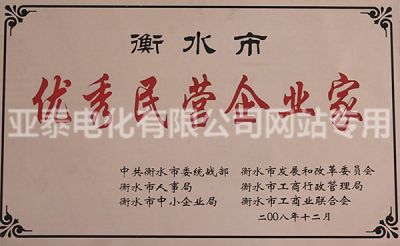 衡水市
优秀民营企业家
亚泰电化有限公司网站专用
中共衡水市委统战部 衡水市发展和改革委员会
衡水市人事局 衡水市工商行政管理局
衡水市中小企业局 衡水市工商业联合会
二00八年十二月